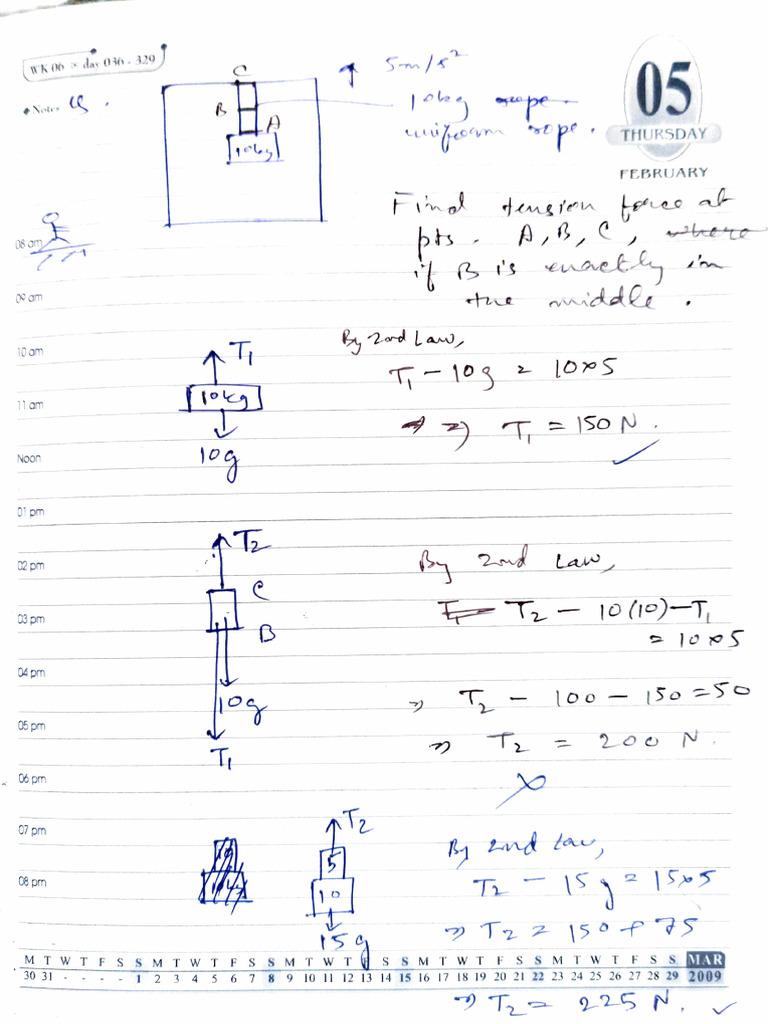 WK 06 * day 036 - 329
Notes
Q.
C
B
A
10kg
5m/s²
10kg rope
uniform rope.
05
THURSDAY
FEBRUARY
Find tension force at
pts. A, B, C, where
if B is exactly in
the middle.
08 am
09 am
10 am
11 am
Noon
01 pm
02 pm
03 pm
04 pm
05 pm
06 pm
07 pm
08 pm
T₁
10kg
10g
By 2nd Law,
T₁ - 10g = 10×5
=> T₁ = 150 N.
T₂
C
B
10g
T₁
By 2nd Law,
T₁ T₂ - 10(10) - T₁
= 10×5
=> T₂ - 100 - 150 = 50
=> T₂ = 200 N.
T₂
5
10
15g
By 2nd Law,
T₂ - 15g = 15×5
=> T₂ = 150 + 75
=> T₂ = 225 N.
M T W T F S S M T W T F S S M T W T F S S M T W T F S S M T W T F S S MAR
30 31 - - - - 1 2 3 4 5 6 7 8 9 10 11 12 13 14 15 16 17 18 19 20 21 22 23 24 25 26 27 28 29 2009